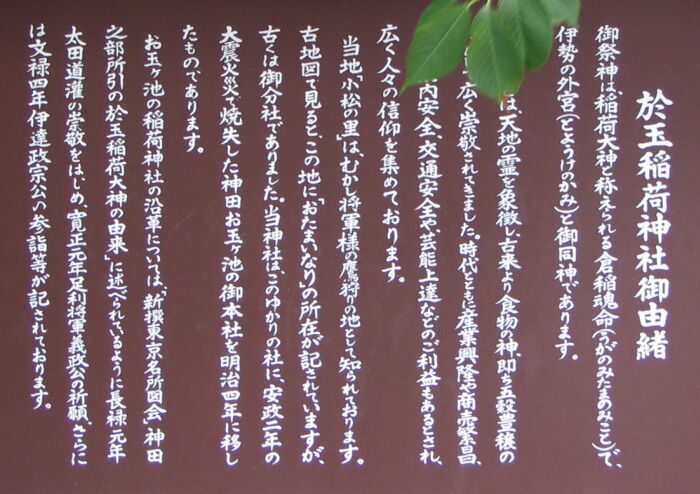 於玉稲荷神社御由緒
御祭神は、稲荷大神と称えられる倉稲魂命(うがのみたまのみこと)で、
伊勢の外宮(とようけのかみ)と御同神であります。
は天地の霊を象徴し、古来より食物の神、即ち五穀豊穣の
広く崇敬されてきました。時代とともに産業興隆や商売繁昌、
内安全、交通安全や、芸能上達などのご利益もあるとされ、
広く人々の信仰を集めております。
当地「小松の里」は、むかし将軍様の鷹狩りの地として知られております。
古地図で見ると、この地に「おたまいなり」の所在が記されていますが、
古くは御分社でありました。当神社は、このゆかりの社に、安政二年の
大震火災で焼失した神田お玉ヶ池の御本社を明治四年に移し
たものであります。
お玉ヶ池の稲荷神社の沿革については、「新撰東京名所図会」神田
之部所引の「於玉稲荷大神の由来」に述べられているように長禄元年
太田道灌の崇敬をはじめ、寛正元年足利将軍義政公の祈願、さらに
は文禄四年伊達政宗公の参詣等が記されております。